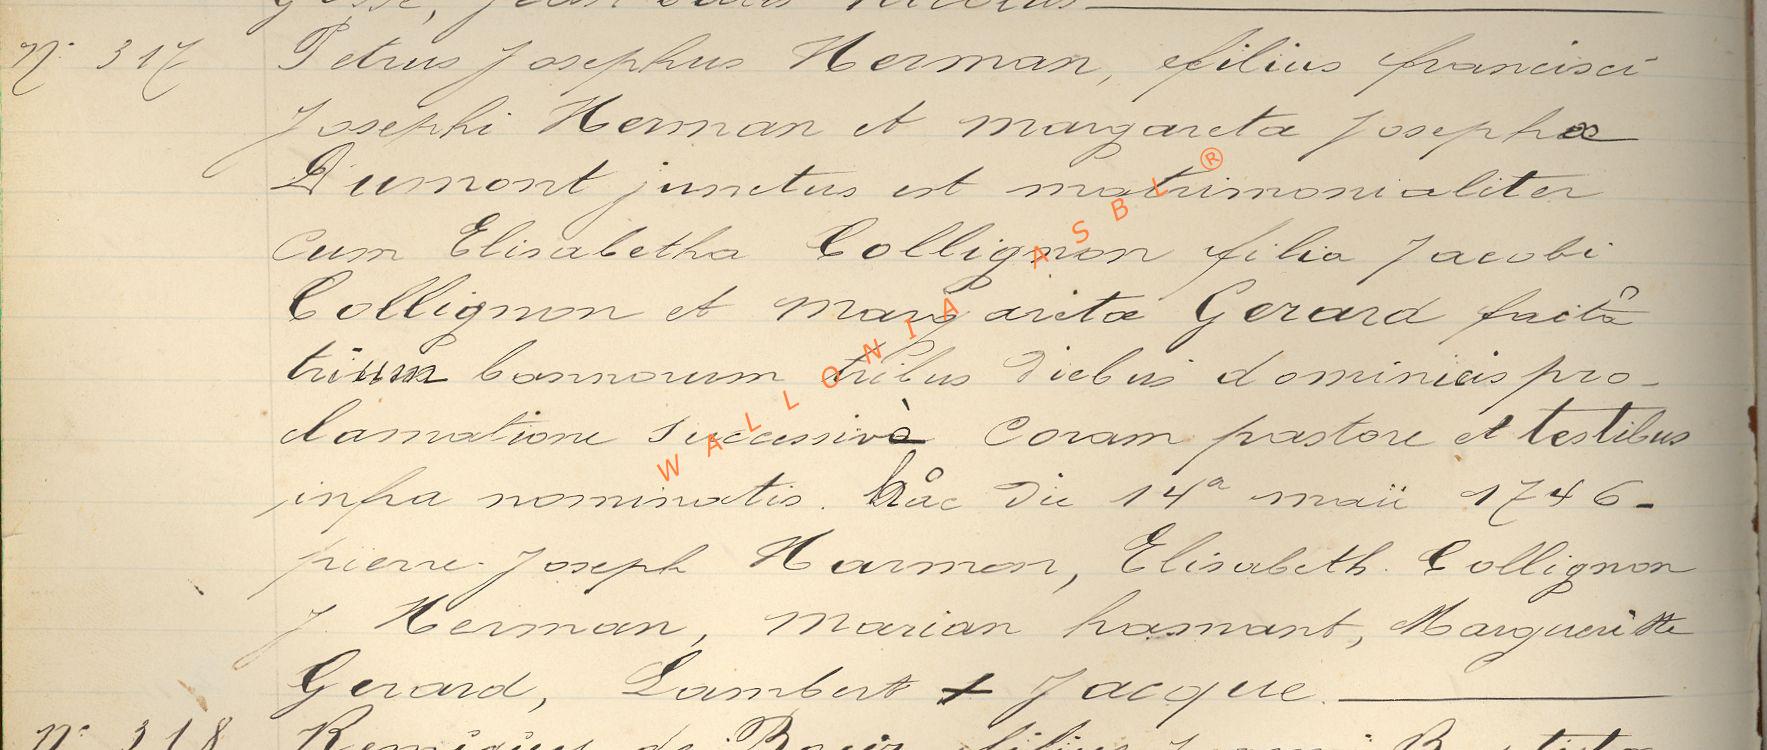 Gosse, Jean Nicolas
N° 317 Petrus Josephus Herman, filius francisci
Josephi Herman et margareta Josepha
Dumont junctus est matrimonialiter
cum Elisabetha Collignon filia Jacobi
Collignon et Margareta Gerard factâ
trium bannorum tribus diebus dominicis pro-
clamatione successivà coram pastore et testibus
infra nominatis. hâc die 14ª maii 1746-
pierre-Joseph Harmen, Elisabeth. Collignon
J. Herman, Marian hamant, Margueritte
Gerard, Lambert + Jacque.
N° 318 Remigius de filius
WALLONIA ASBL ®